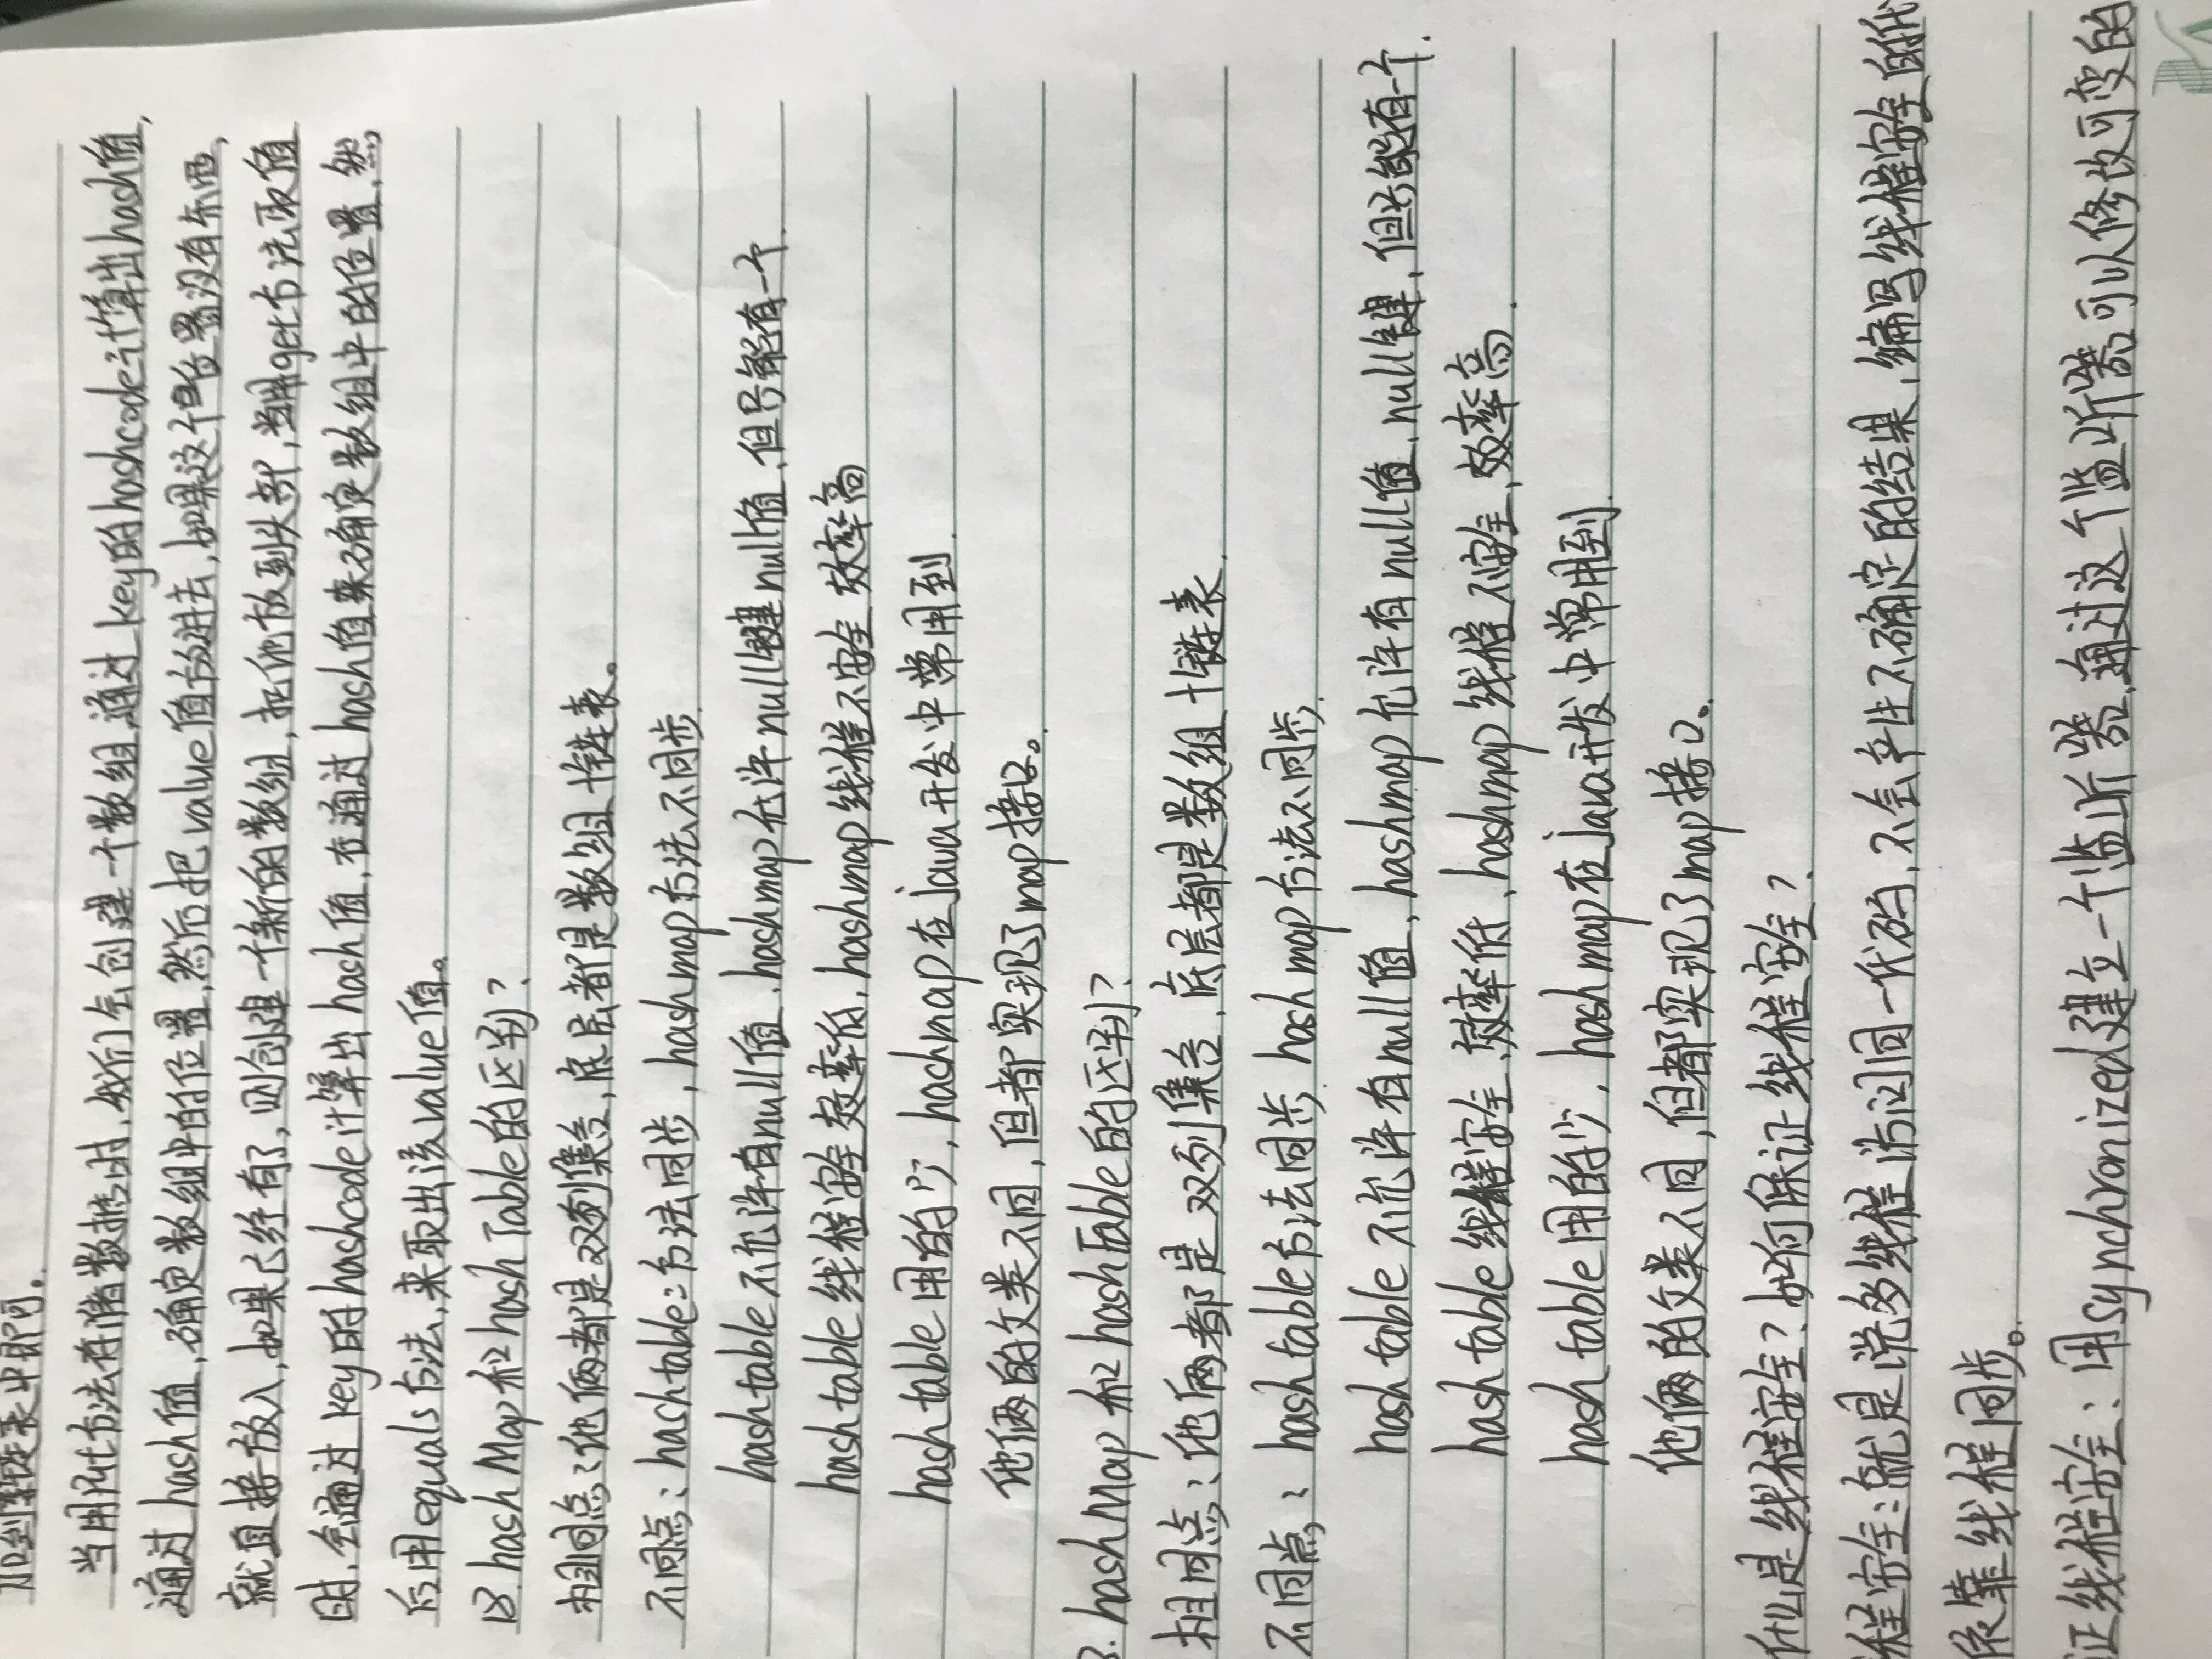 加到新链表中即可。
当用Put方法存储数据时,我们会创建一个数组,通过key的hashcode计算出hash值,
通过hash值,确定数组中的位置,然后把value值放进去,如果这个位置没有东西,
就直接放入,如果已经有了,则创建一个新的数组,把他放到头部,当用get方法取值
时,会通过key的hashcode计算出hash值,在通过hash值来确定数组中的位置,然
后用equals方法,来取出该value值。
18.hashMap和hashTable的区别?
相同点:他俩都是双列集合,底层都是数组+链表。
不同点:hashtable:方法同步,hashmap方法不同步.
hashtable不允许有null值,hashmap允许null键null值,但只能有一个.
hashtable线程安全效率低,hashmap线程不安全 效率高
hashtable用的少,hashmap在java开发中常用到.
他俩的父类不同,但都实现了map接口。
3.hashMap和hashTable的区别?
相同点:他俩都是双列集合,底层都是数组+链表.
不同点:hashtable方法同步,hashmap方法不同步.
hashtable不允许有null值,hashmap允许有null值,null键,但只能有一个.
hashtable线程安全,效率低,hashmap线程不安全,效率高.
hashtable用的少,hashmap在java开发中常用到.
他俩的父类不同,但都实现了map接口。
什么是线程安全?如何保证线程安全?
程安全:就是说多线程访问同一代码,不会产生不确定的结果,编写线程安全的代
依靠线程同步。
证线程安全:用synchronized建立一个监听器,通过这个监听器可以修改可变的